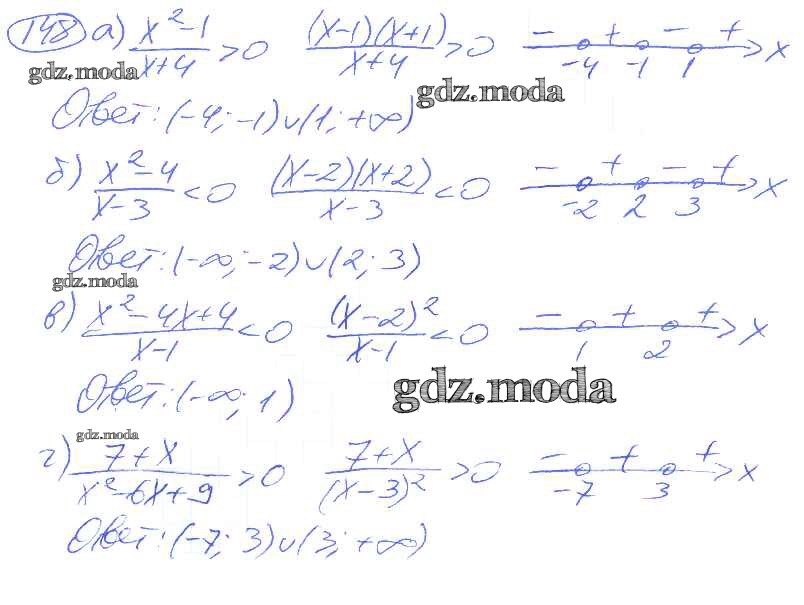 148 а) (x² - 1)/(x+4) > 0   ((x-1)(x+1))/(x+4) > 0   - + - + x
-4 -1 1
gdz.moda
gdz.moda
Ответ: (-4; -1)∪(1; +∞)
б) (x² - 4)/(x-3) < 0   ((x-2)(x+2))/(x-3) < 0   - + - + x
-2 2 3
Ответ: (-∞; -2)∪(2; 3)
gdz.moda
в) (x² - 4x+4)/(x-1) < 0   (x-2)²/(x-1) < 0   - + + x
1 2
Ответ: (-∞; 1)
gdz.moda
gdz.moda
г) (7+x)/(x² - 6x+9) > 0   (7+x)/(x-3)² > 0   - + + x
-7 3
Ответ: (-7; 3)∪(3; +∞)